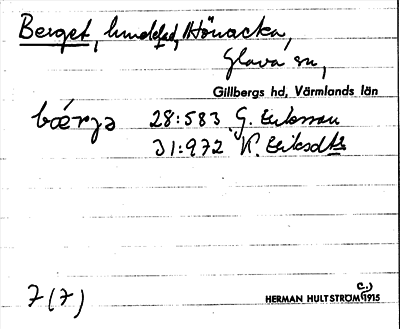 Berget, lundefjd, Hönacka,
Glava sn,
Gillbergs hd, Värmlands län
bǽrjə 28:583 G. Eriksson
31:972 K. Eriksdtr
7(7)
HERMAN HULTSTRÖM (c.) 1915